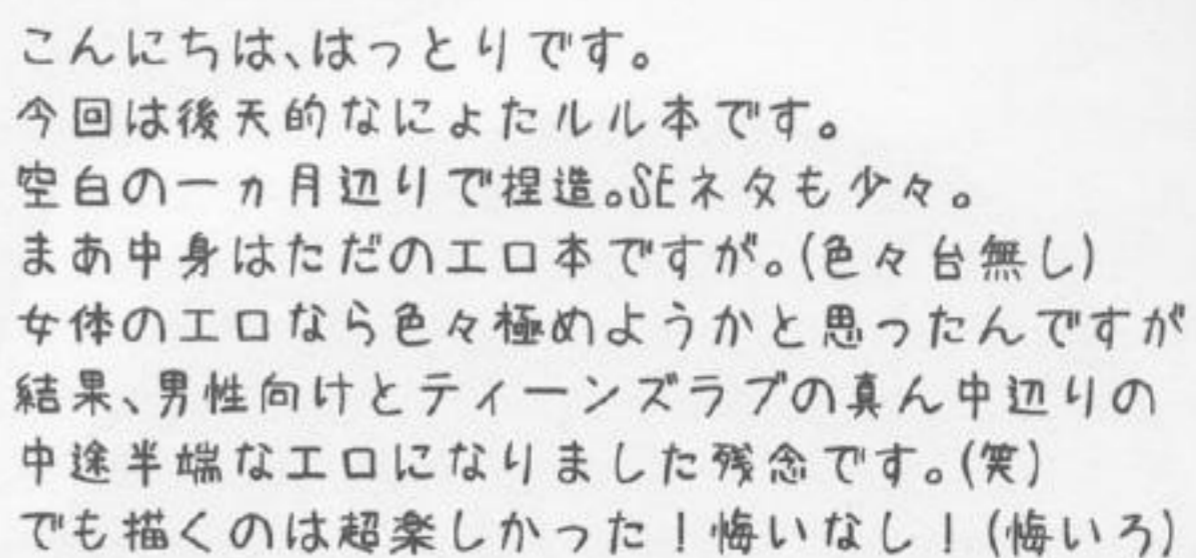 こんにちは、はっとりです。
今回は後天的なにょたルル本です。
空白の一ヵ月辺りで捏造。SEネタも少々。
まあ中身はただのエロ本ですが。(色々台無し)
女体のエロなら色々極めようかと思ったんですが
結果、男性向けとティーンズラブの真ん中辺りの
中途半端なエロになりました残念です。(笑)
でも描くのは超楽しかった！悔いなし！(悔いろ)